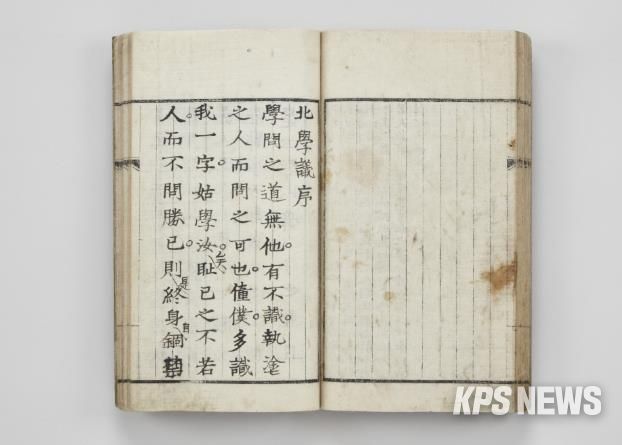 北學議序
學問之道無他。有不識。執塗
之人而問之可也。僮僕。多識
我一字。姑學汝。恥己之不若
人。而不問勝己。則是終身自錮
KPS NEWS